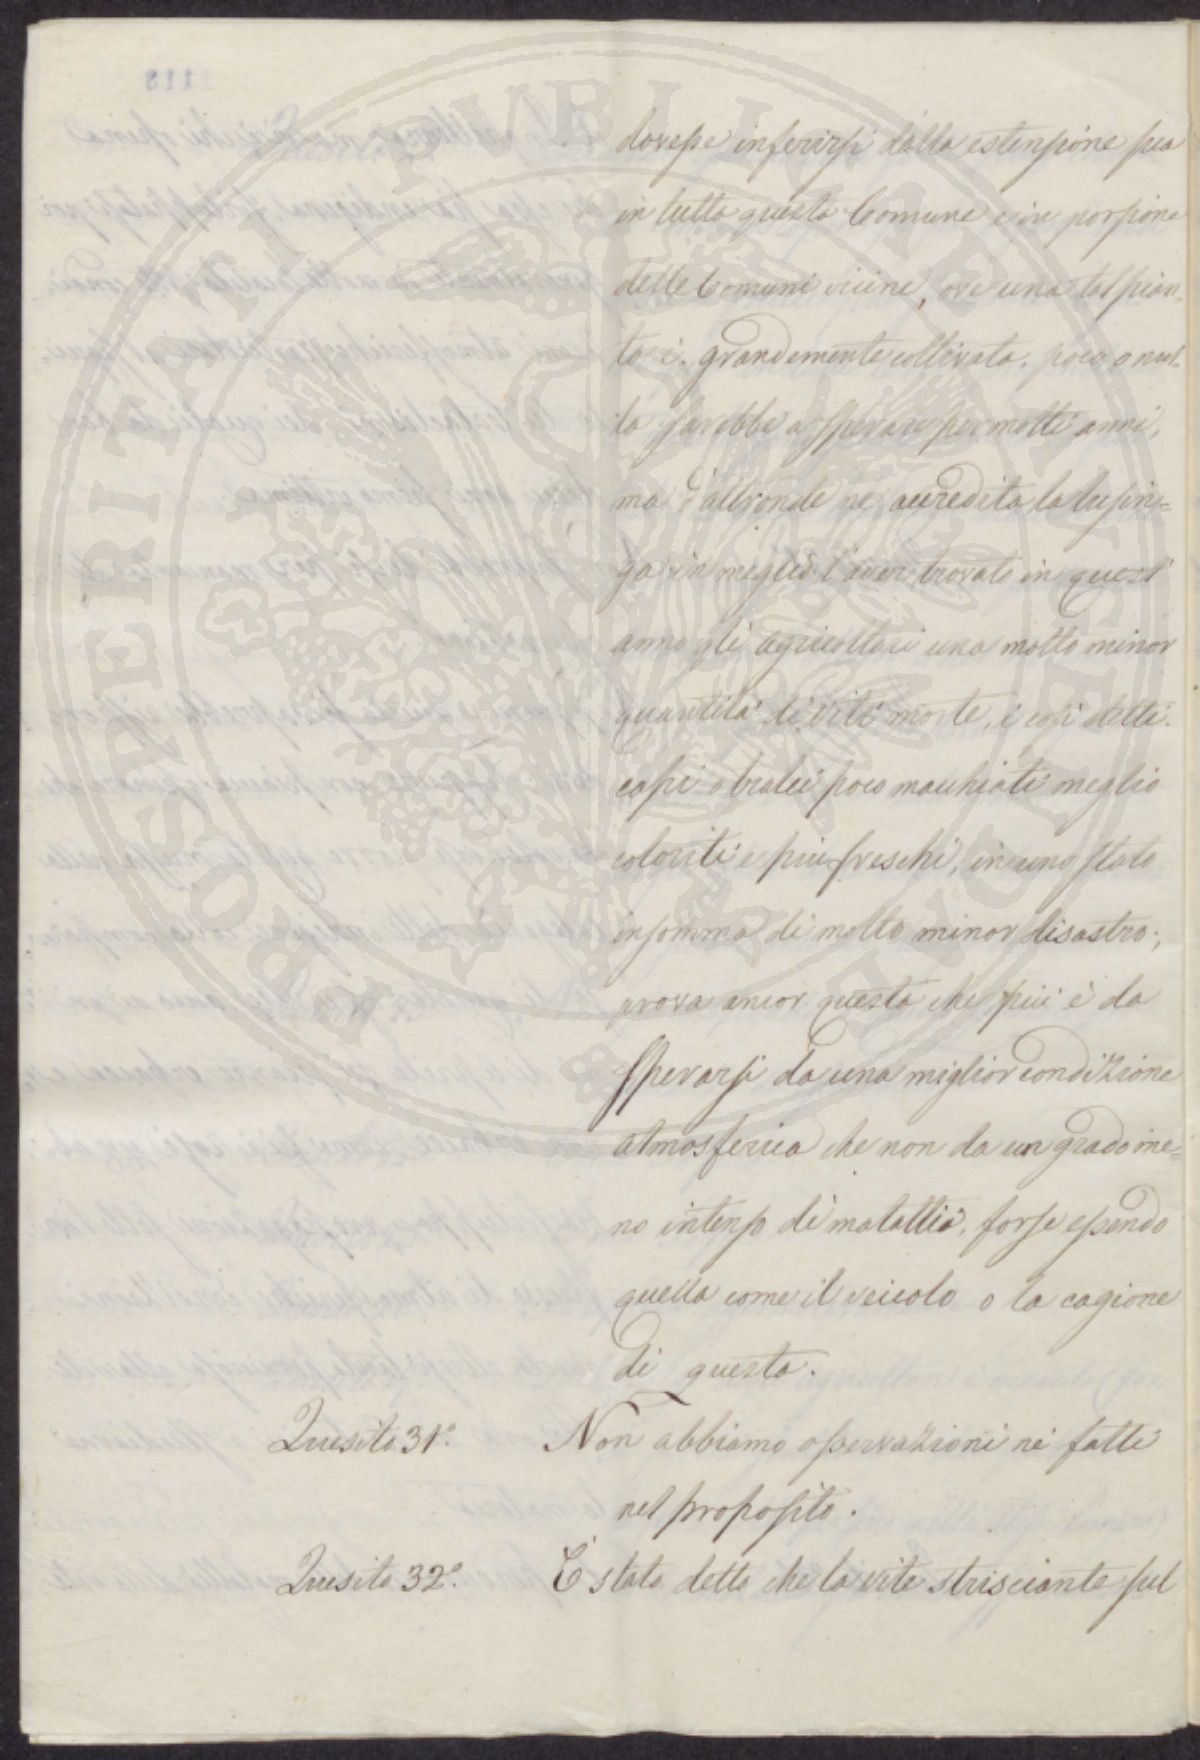 dovesse inferirsi dalla estensione sua
in tutta questa Comune e in porzione
delle Comuni vicine, ove una tal pian-
ta è grandemente coltivata, poco o nul-
la sarebbe a sperare per molti anni,
ma d'altronde ne accredita la lusin=
ga in meglio l'aver trovato in quest'
anno gli agricoltori una molto minor
quantità di viti morte, i così detti
capi o tralci poco macchiati meglio
coloriti e più freschi, in uno stato
insomma di molto minor disastro;
prova ancor questa che più è da
sperarsi da una miglior condizione
atmosferica che non da un grado me=
no intenso di malattia, forse essendo
quella come il veicolo o la cagione
di questa.
Quesito 31.° Non abbiamo osservazioni nè fatti
nel proposito.
Quesito 32.° È stato detto che la vite strisciante sul
PROSPERITATI PUBLICAE